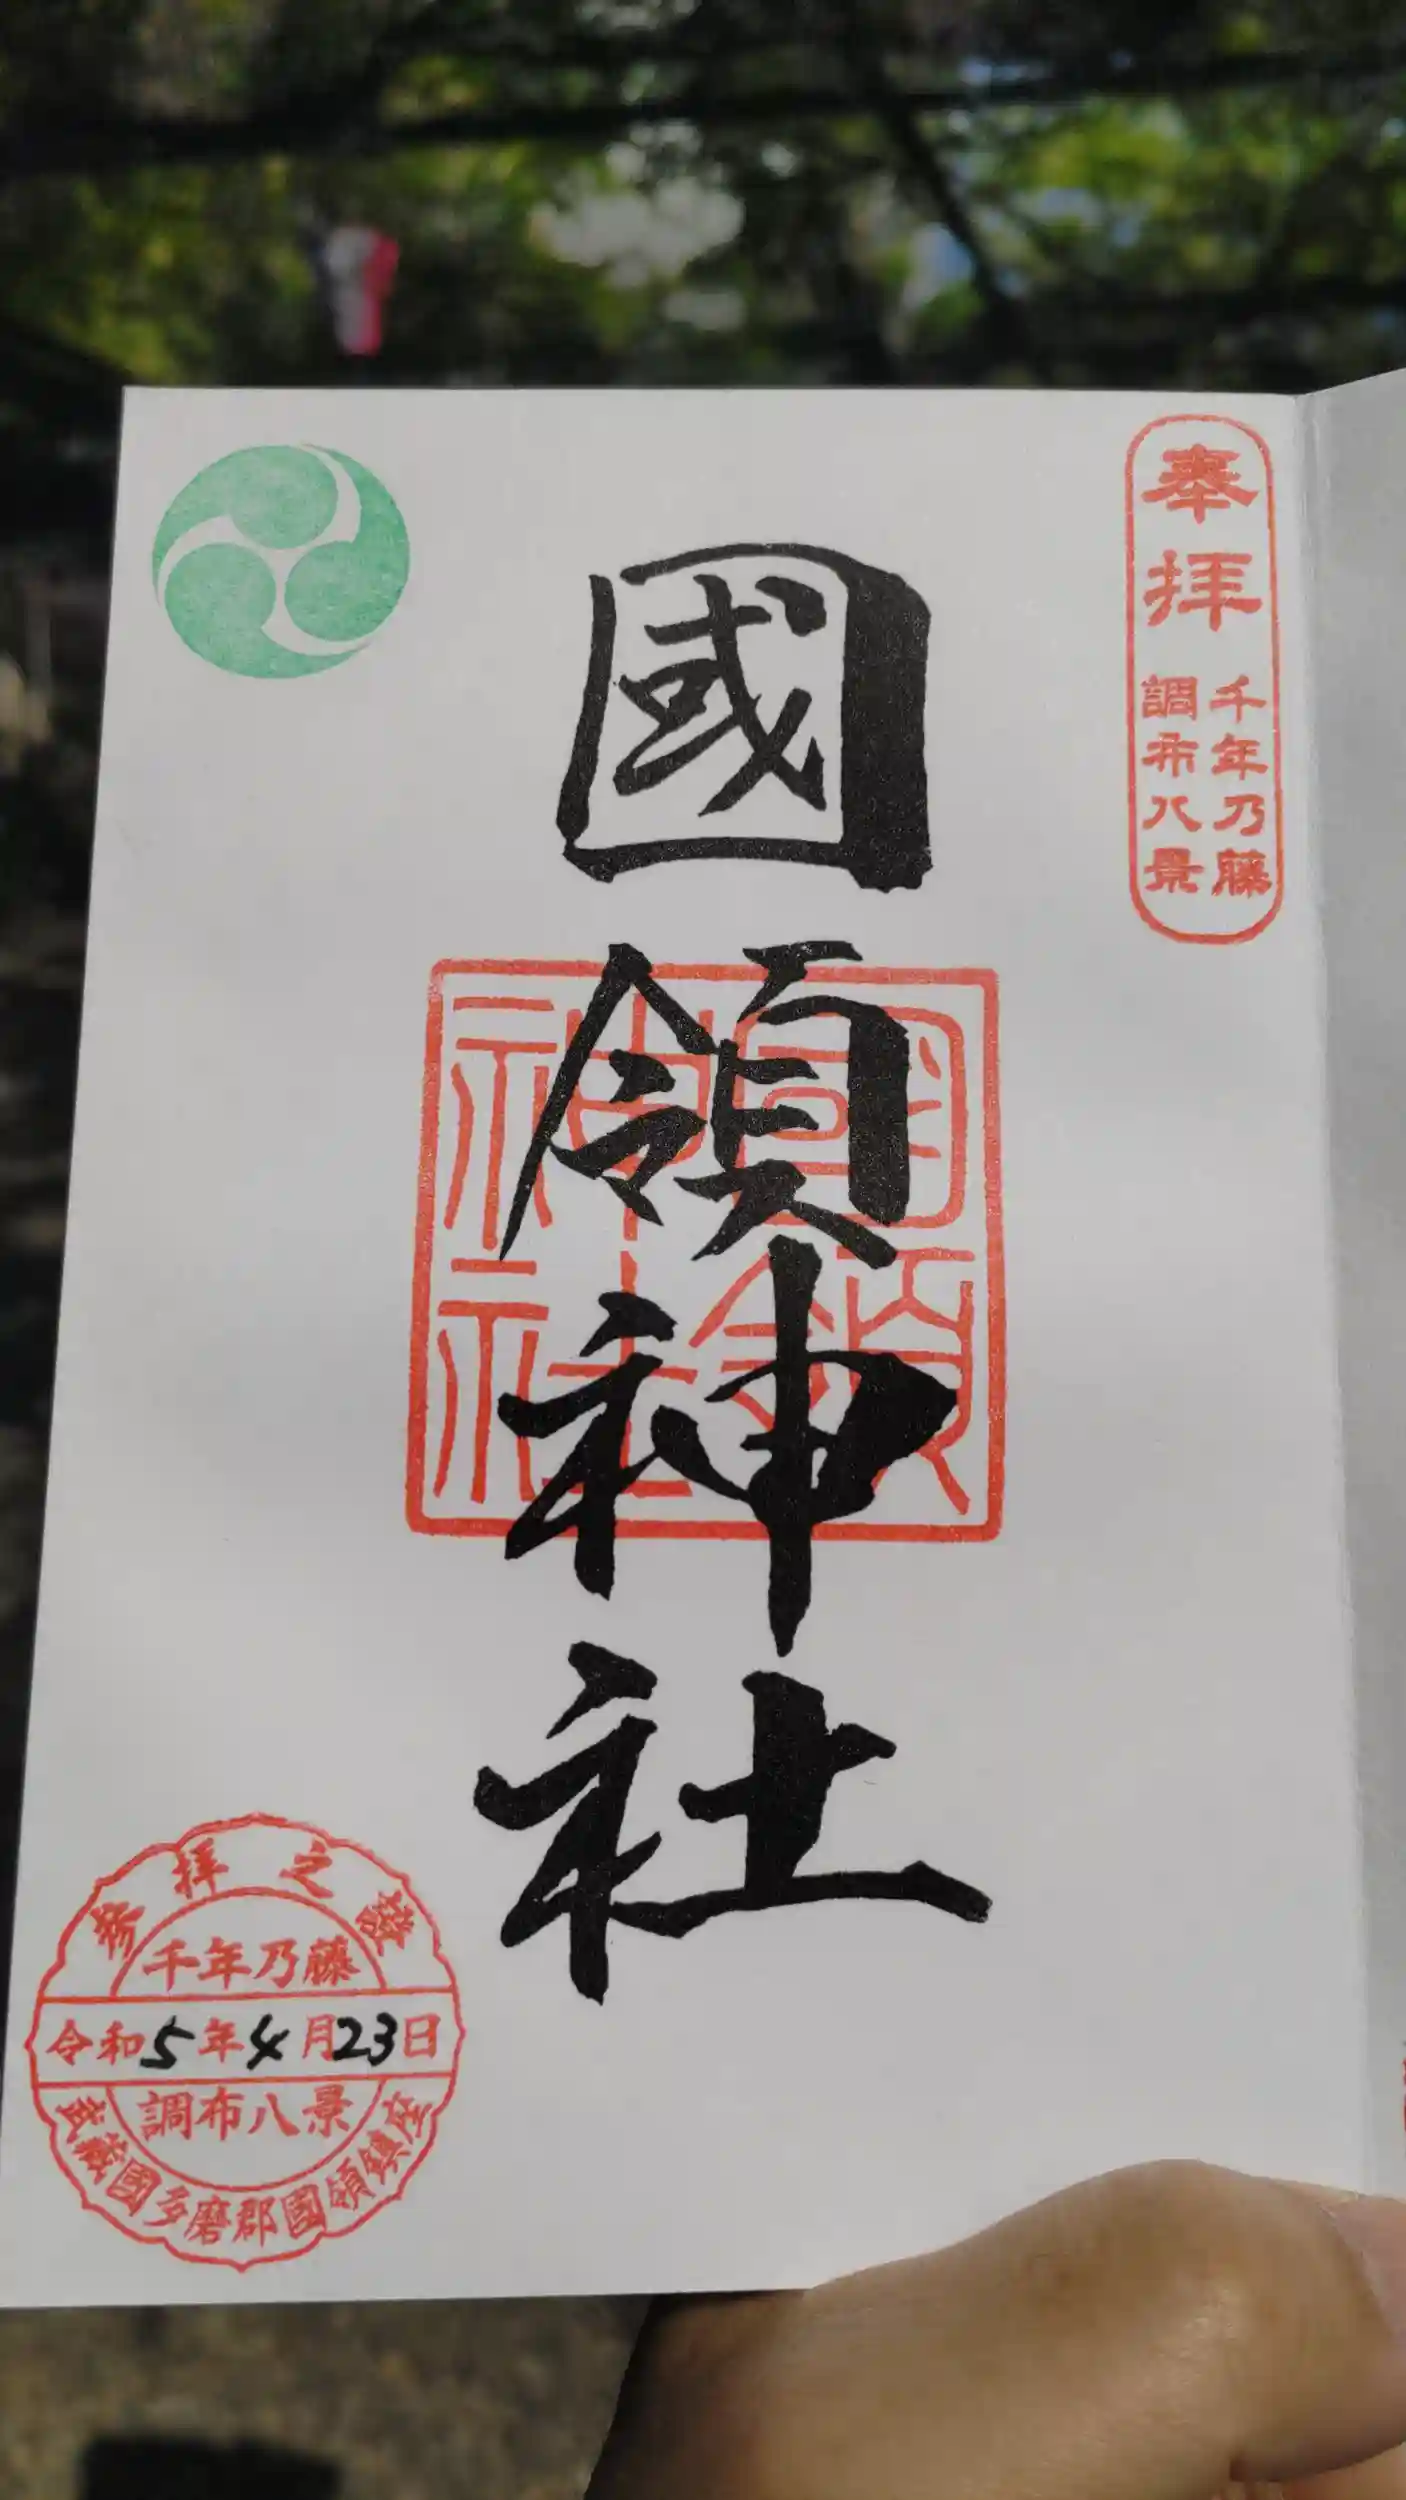 奉拝
千年乃藤
調布八景
國領神社
國領
神社
参拝之證
千年乃藤
令和5年4月23日
調布八景
武蔵國多磨郡國領鎮座